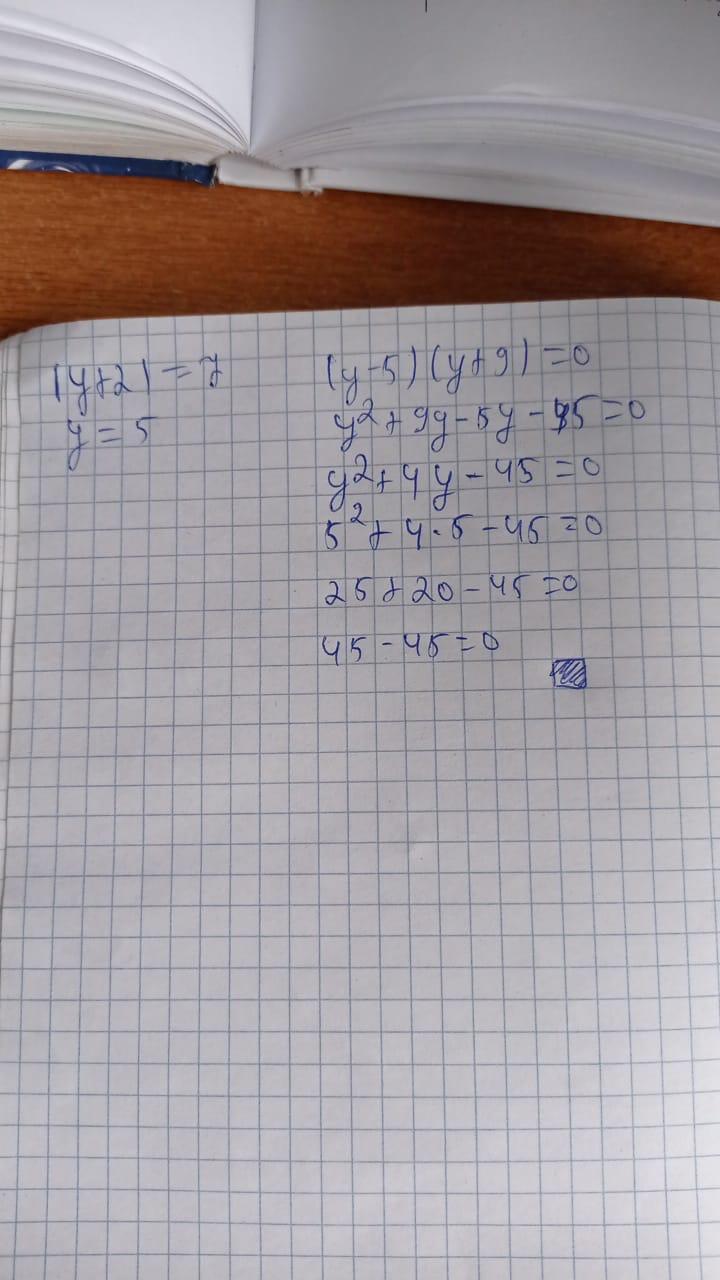 |y+2| = 7
y = 5
(y-5)(y+9) = 0
y²+9y-5y-45=0
y²+4y-45=0
5²+4·5-45=0
25+20-45=0
45-45=0